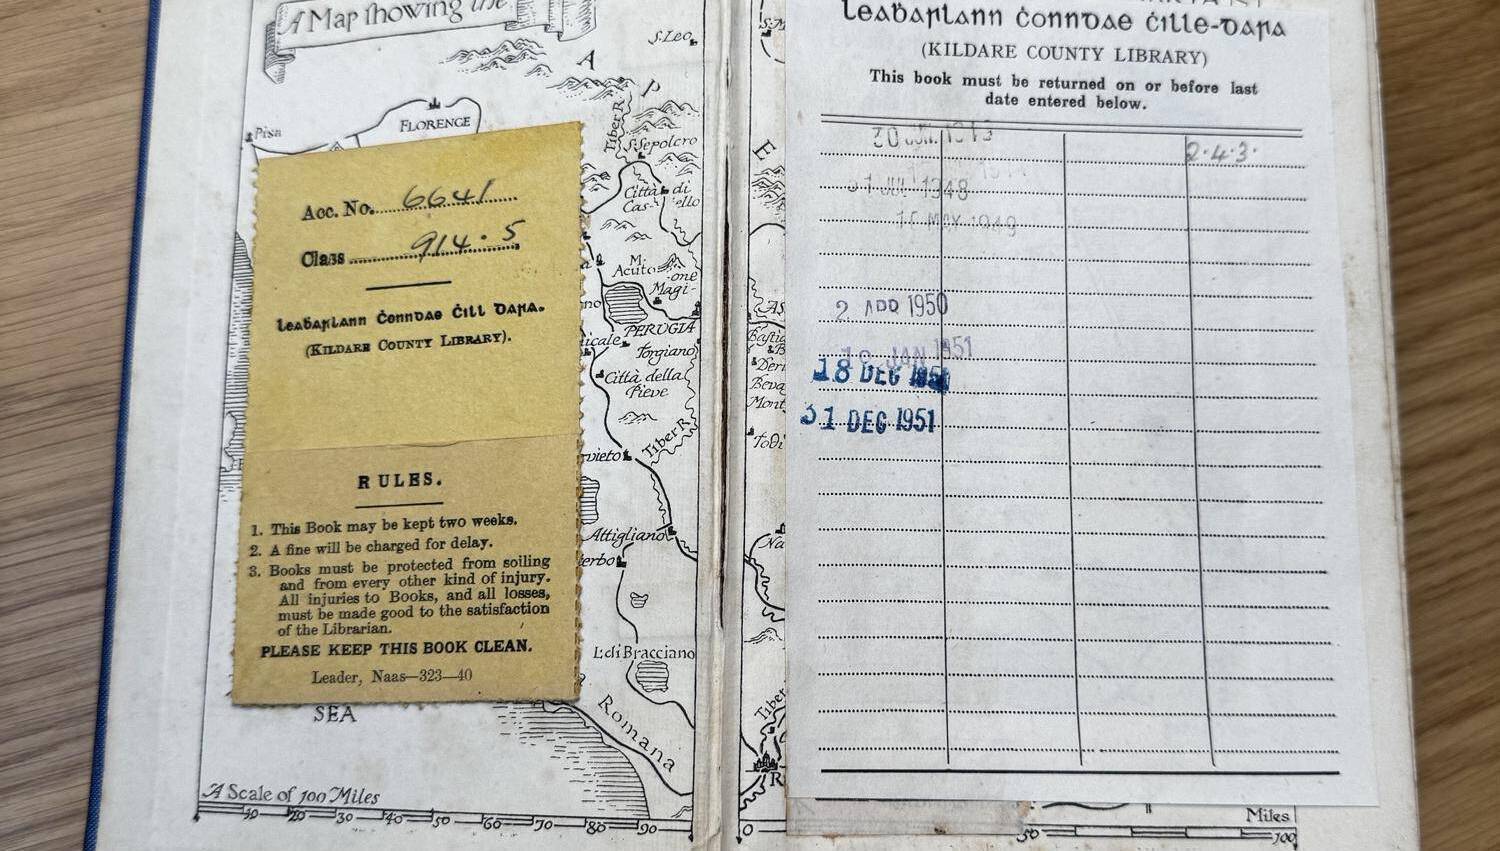 A Map showing the
S. Leo
A
P
E
Pisa
FLORENCE
Tiber R
S. Sepolcro
Città di
Cas- ello
Acc. No. 6641
Class 914.5
Leabarlann Ċonndae Ċill Dara.
(KILDARE COUNTY LIBRARY).
M.
Acuto
one
Magi-
PERUGIA
Torgiano
Città della
Pieve
Tiber R
RULES.
1. This Book may be kept two weeks.
2. A fine will be charged for delay.
3. Books must be protected from soiling
and from every other kind of injury.
All injuries to Books, and all losses,
must be made good to the satisfaction
of the Librarian.
PLEASE KEEP THIS BOOK CLEAN.
Leader, Naas—323—40
Attigliano
L. di Bracciano
Romana
SEA
A Scale of 100 Miles
10 20 30 40 50 60 70 80 90
Leaḃarlann Ċonndae Ċille-Dara
(KILDARE COUNTY LIBRARY)
This book must be returned on or before last
date entered below.
2.4.3.
31 JUL 1948
MAY 1949
2 APR 1950
JAN 1951
18 DEC
31 DEC 1951
Todi
Tiber
0
50
Miles
100